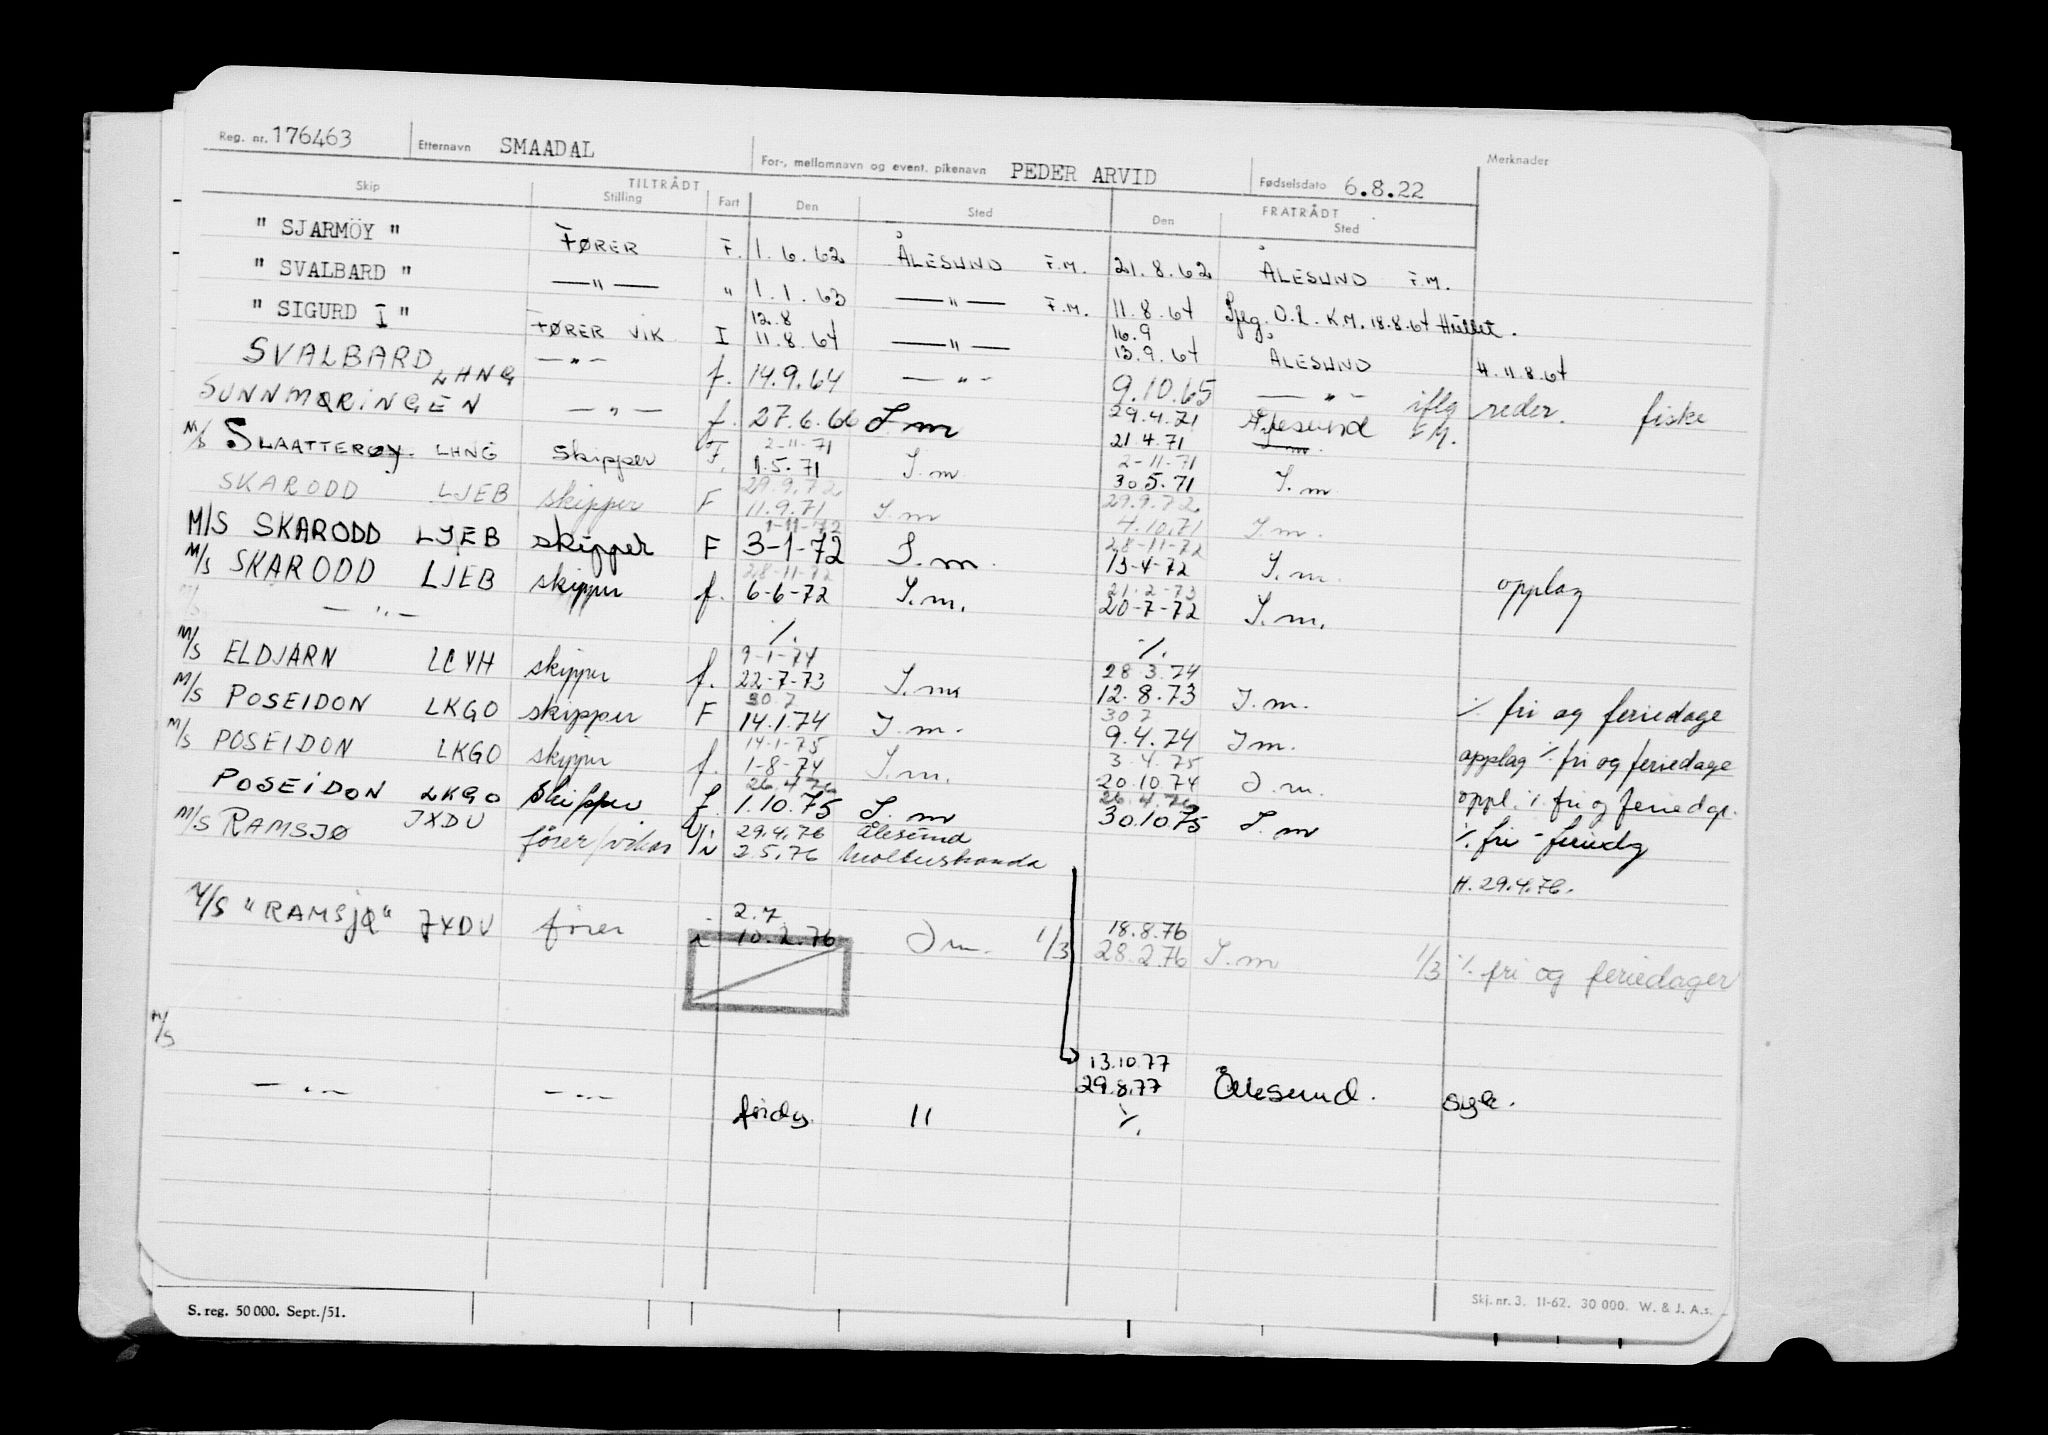 Reg. nr. 176463 Etternavn SMAADAL For-, mellomnavn og event. pikenavn PEDER ARVID Fødselsdato 6.8.22 Merknader
TILTRÅDT FRATRÅDT
Skip Stilling Fart Den Sted Den Sted
" SJARMÖY " FØRER F. 1.6.62 ÅLESUND F.M. 21.8.62 ÅLESUND F.M.
" SVALBARD " —"— " 1.1.63 —"— F.M. 11.8.64 O.L. K.M. 18.8.64
12.8 16.9
" SIGURD I " FØRER VIK I 11.8.64 —"— 13.9.64 ÅLESUND H. 11.8.64
SVALBARD LHNG —"— f. 14.9.64 —"— 9.10.65 —"— iflg reder. fiske
29.4.71
SUNNMØRINGEN —"— f. 27.6.66 I.m 21.4.71 Ålesund F.M.
2-11-71 2-11-71
M/S SLAATTERØY LHNG skipper F. 1.5.71 I.m 30.5.71 I.m
29.9.72 29.9.72
SKARODD LJEB skipper F 11.9.71 I.m 4.10.71 I.m.
1-11-72 28-11-72
M/S SKARODD LJEB skipper F 3-1-72 I.m. 13-4-72 I.m. opplag
28-11-72 21.2-73
M/S SKARODD LJEB skipper f. 6-6-72 I.m. 20-7-72 I.m.
M/S —"— ./. ./.
9-1-74 28.3.74
M/S ELDJARN LCYH skipper f. 22-7-73 I.m. 12.8.73 I.m. ./. fri og feriedage
30.7 30.7
M/S POSEIDON LKGO skipper F 14.1.74 I.m. 9.4.74 I.m. opplag ./. fri og feriedage
14-1-75 3.4.75
M/S POSEIDON LKGO skipper f. 1-8-74 I.m. 20.10.74 I.m. oppl. ./. fri og
26.4.76 26.4.76
POSEIDON LKGO skipper f. 1.10.75 I.m 30.10.75 I.m ./. fri
M/S RAMSJØ JXDU fører/vikar 29.4.76 Ålesund H. 29.4.76.
2.5.76
2.7 18.8.76
M/S "RAMSJØ" JXDU fører i 10.2.76 I m. 1/3 28.2.76 I.m 1/3 ./. fri og feriedager
M/S
13.10.77
—"— —"— 29.8.77 Ålesund. syk.
11 ./.
S. reg. 50 000. Sept./51. Skj. nr. 3. 11-62. 30 000. W. & J. A.s.